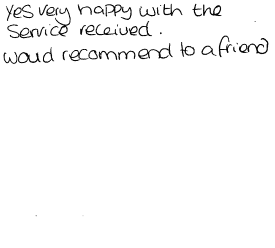 Yes very happy with the
Service received.
woud recommend to a friend